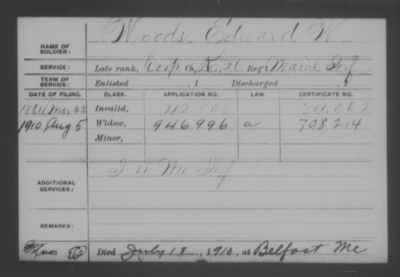 Woods, Edward W.
NAME OF SOLDIER:
SERVICE: Late rank, Corp Co. Reg't Maine Inf
TERM OF SERVICE: Enlisted , 1 Discharged , 1
DATE OF FILING. CLASS. APPLICATION NO. LAW. CERTIFICATE NO.
Invalid,
1910 Aug 5 Widow, 946996 a 708214
Minor,
ADDITIONAL SERVICES: Me Inf
REMARKS:
Died July 18, 1910, at Belfast Me